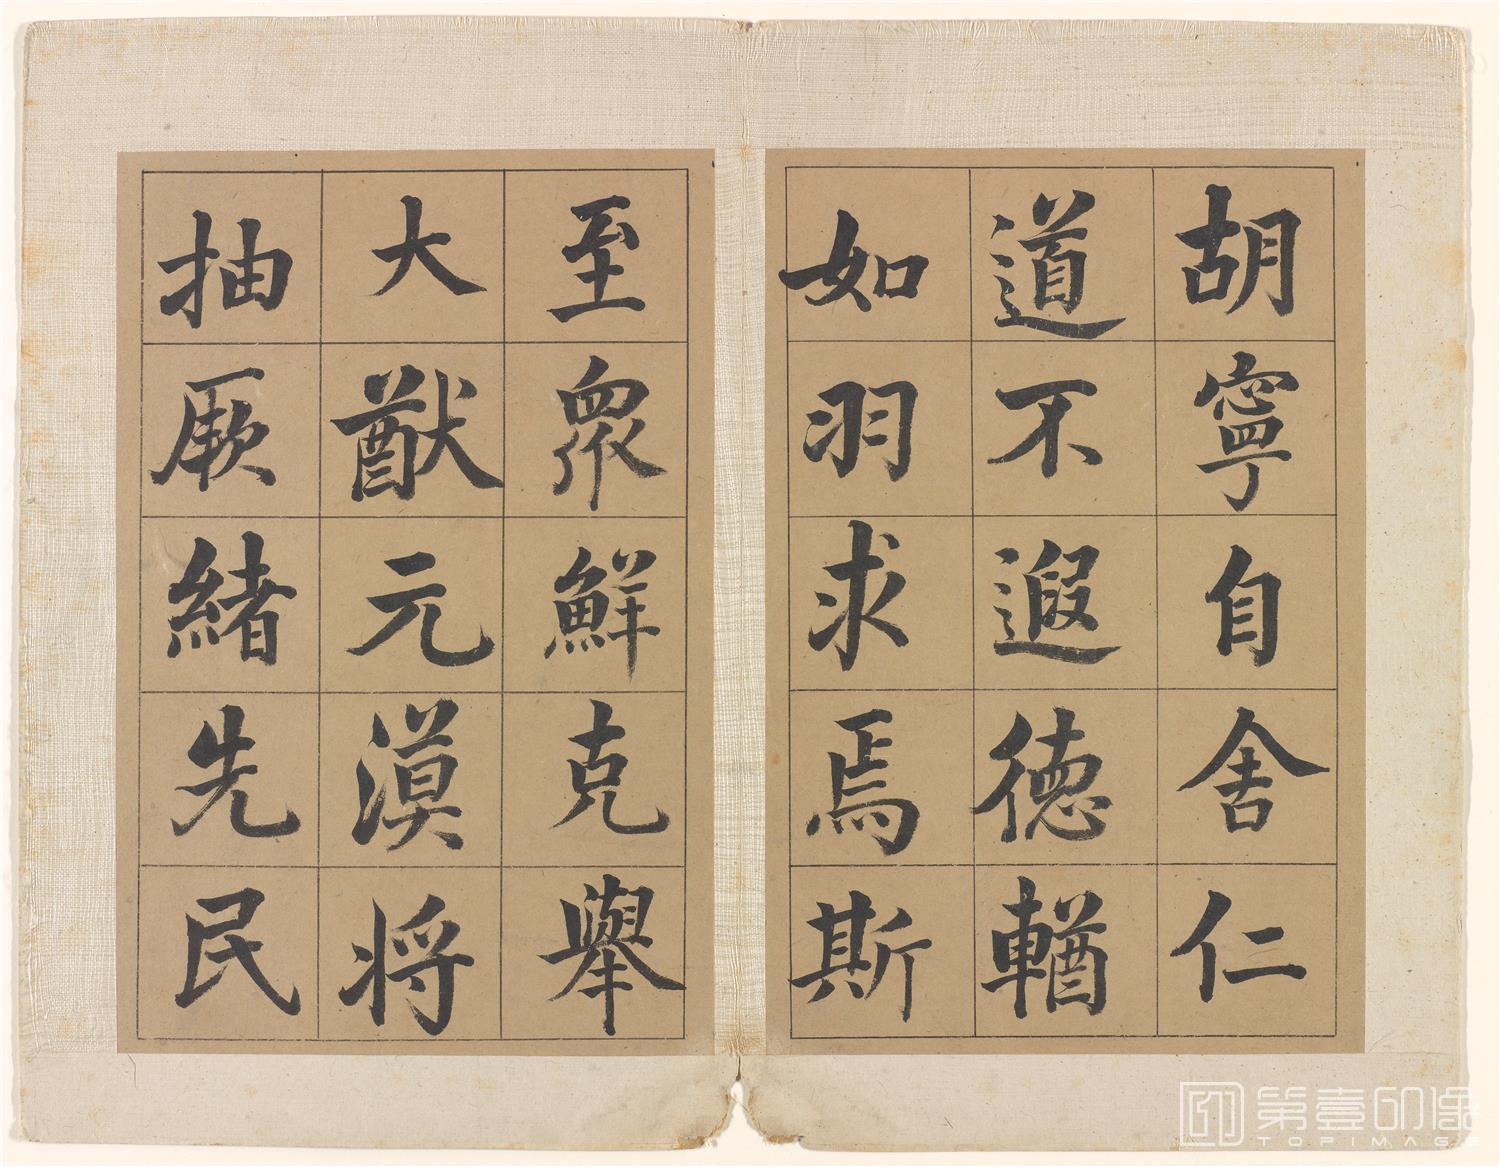 胡寧自舍仁
道不遐德輶
如羽求焉斯
至衆鮮克舉
大猷元漠将
抽厥緒先民
第壹印像
TOPIMAGE